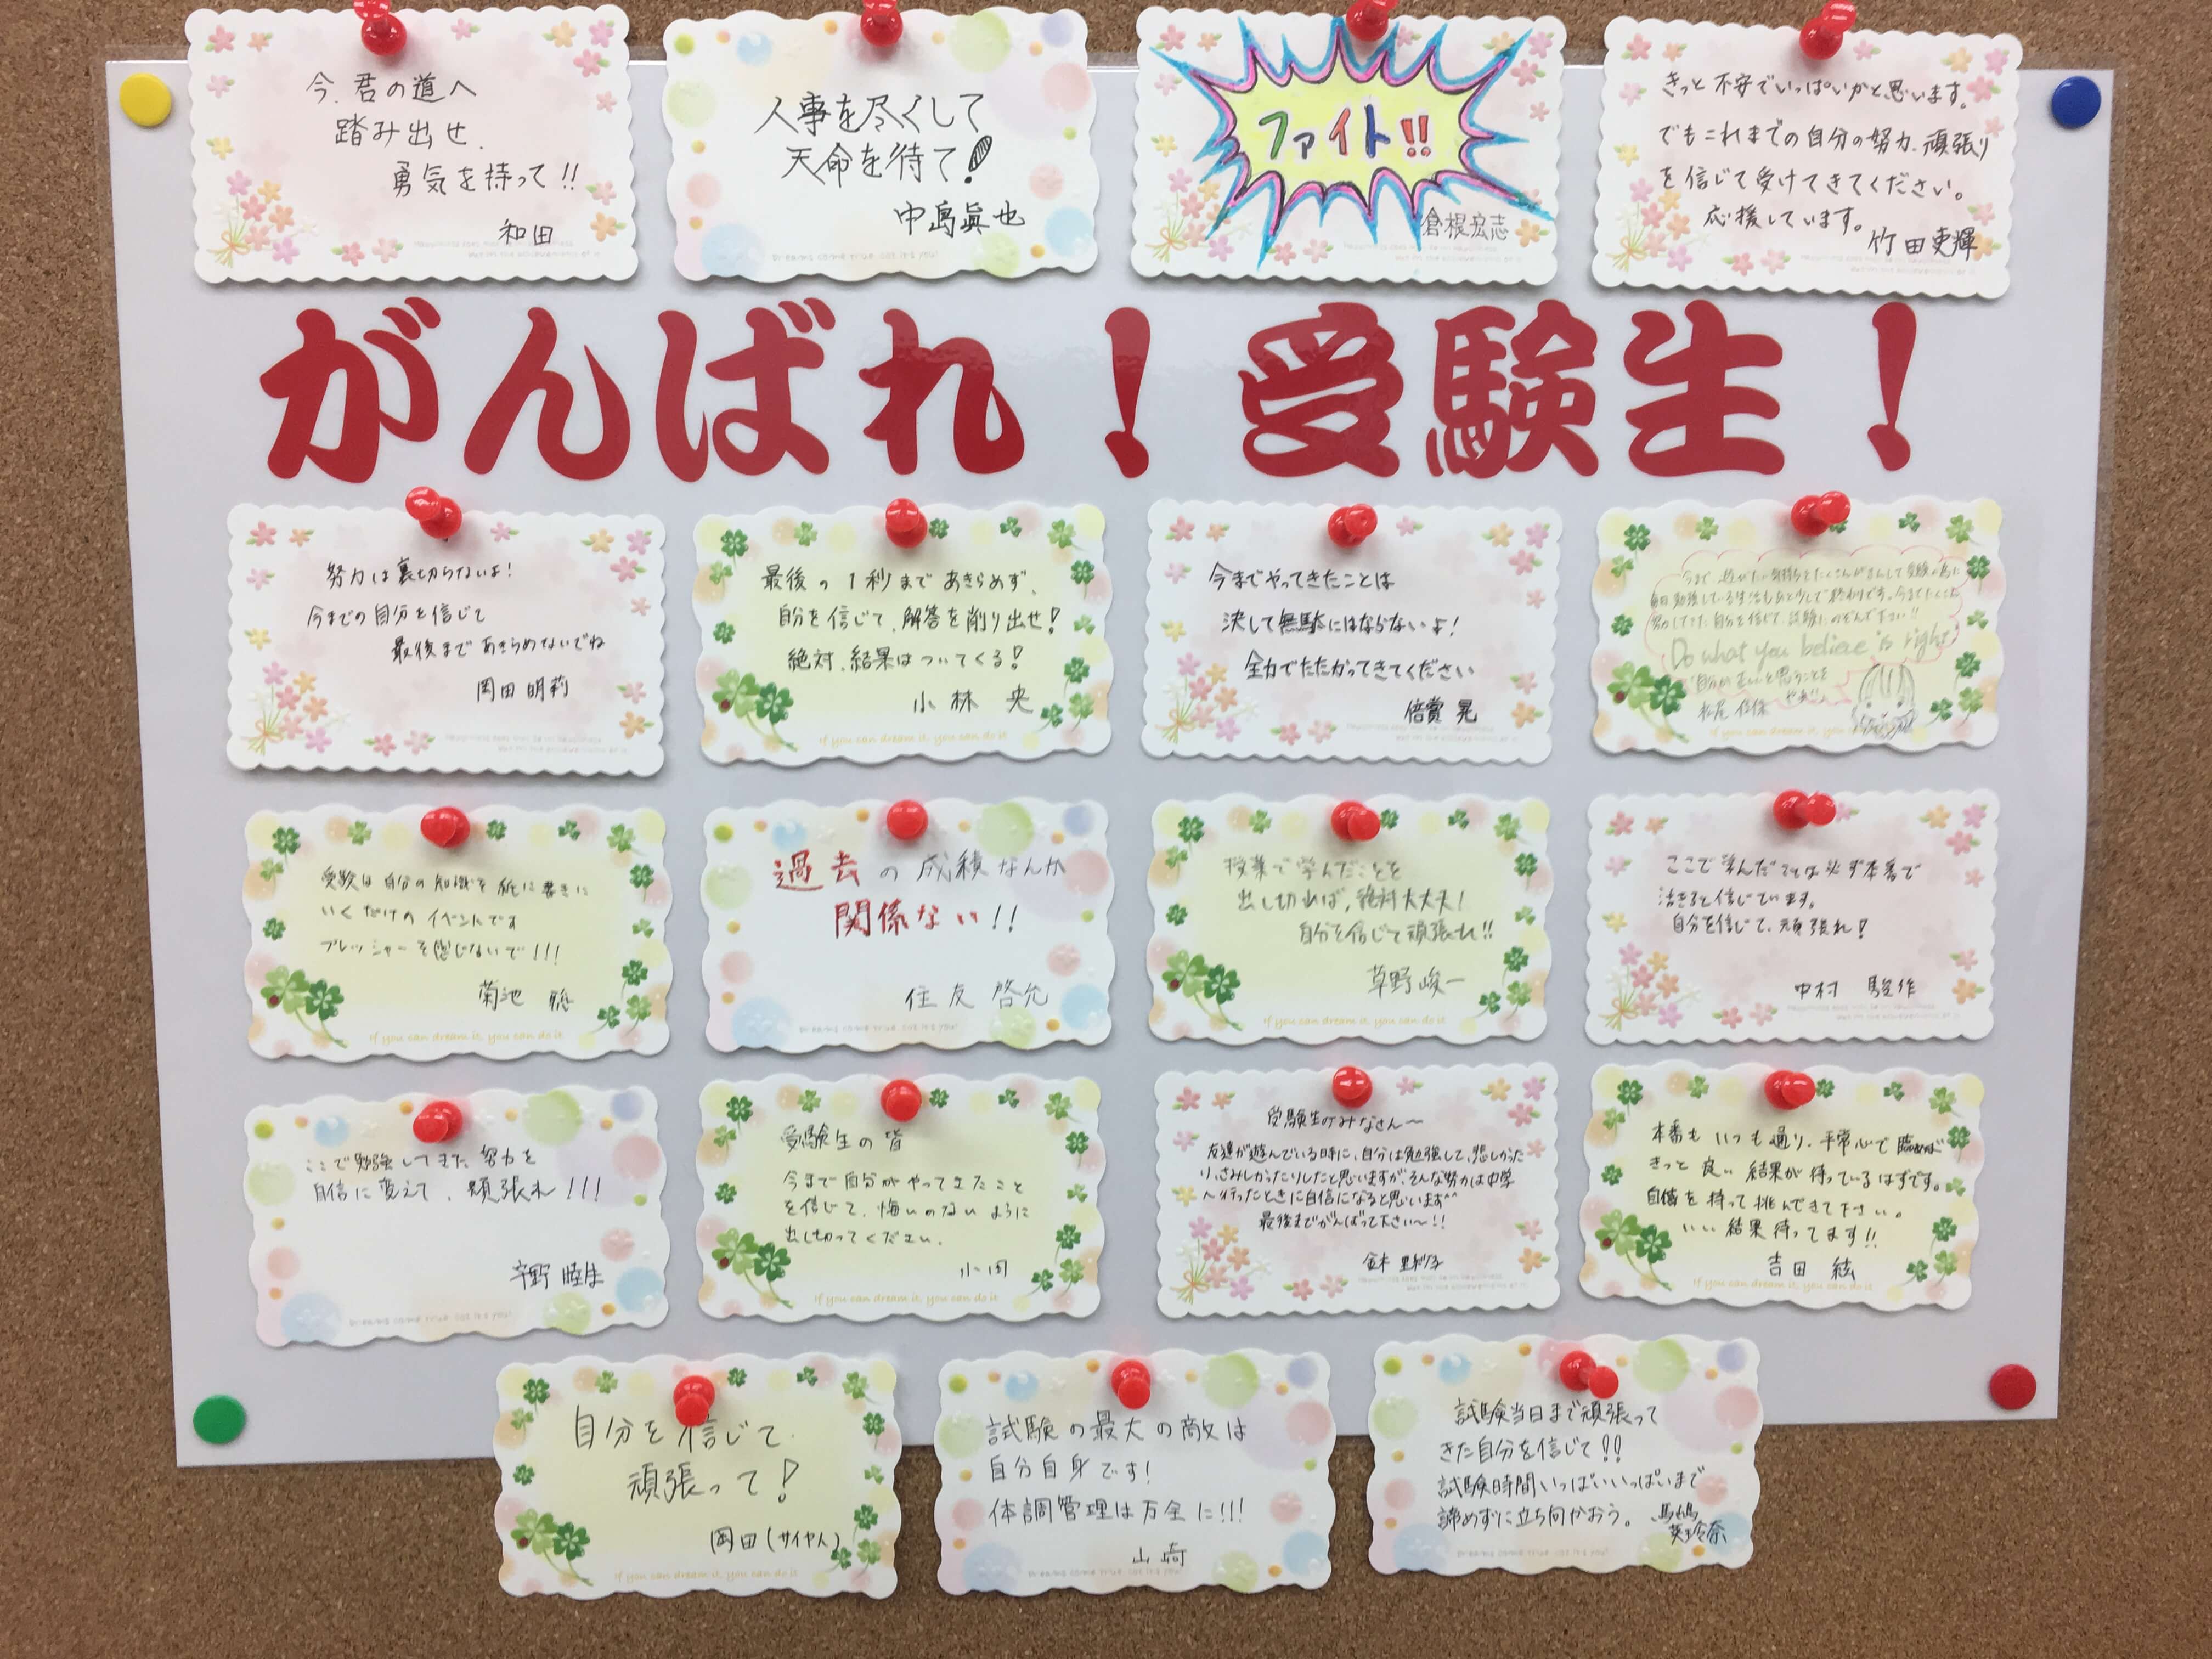 今、君の道へ
踏み出せ、
勇気を持って!!
和田
人事を尽くして
天命を待て!
中島眞也
ファイト!!
倉根宏志
きっと不安でいっぱいかと思います。
でもこれまでの自分の努力、頑張り
を信じて受けてきてください。
応援しています。
竹田吏輝
がんばれ!受験生!
努力は裏切らないよ!
今までの自分を信じて
最後まであきらめないでね
岡田明莉
最後の1秒まであきらめず、
自分を信じて、解答を削り出せ!
絶対、結果はついてくる!
小林 央
If you can dream it, you can do it
今までやってきたことは
決して無駄にはならないよ!
全力でたたかってきてください
倍賞 晃
今まで、遊びたい気持ちをたくさんがまんして受験の為に
毎日勉強している生活もあと少しで終わりです。今までたくさん
努力してきた自分を信じて、試験にのぞんで下さい!!
Do what you believe is right
自分が正しいと思うことを
やれ!!
松尾
If you can dream it, you can do it
受験は自分の知識を紙に書きに
いくだけのイベントです
プレッシャーを感じないで!!!
菊池 聡
If you can dream it, you can do it
過去の成績なんか
関係ない!!
住友 啓允
授業で学んだことを
出し切れば、絶対大丈夫!
自分を信じて頑張れ!!
草野峻一
If you can dream it, you can do it
ここで学んだことは必ず本番で
活きると信じています。
自分を信じて、頑張れ!
中村 駿作
ここで勉強してきた努力を
自信に変えて、頑張れ!!!
宇野
受験生の皆
今まで自分がやってきたこと
を信じて、悔いのないように
出し切ってください。
小田
If you can dream it, you can do it
受験生のみなさん〜
友達が遊んでいる時に、自分は勉強して、悲しかった
り、さみしかったりしたと思いますが、そんな努力は中学
へ行ったときに自信になると思います^^
最後までがんばって下さい〜!!
本番もいつも通り、平常心で臨めば
きっと良い結果が待っているはずです。
自信を持って挑んできて下さい。
いい結果待ってます!!
吉田 紘
If you can dream it, you can do it
自分を信じて
頑張って!
岡田(サイヤ人)
If you can dream it, you can do it
試験の最大の敵は
自分自身です!
体調管理は万全に!!!
山崎
試験当日まで頑張って
きた自分を信じて!!
試験時間いっぱいいっぱいまで
諦めずに立ち向かおう。
馬嶋
英玲奈